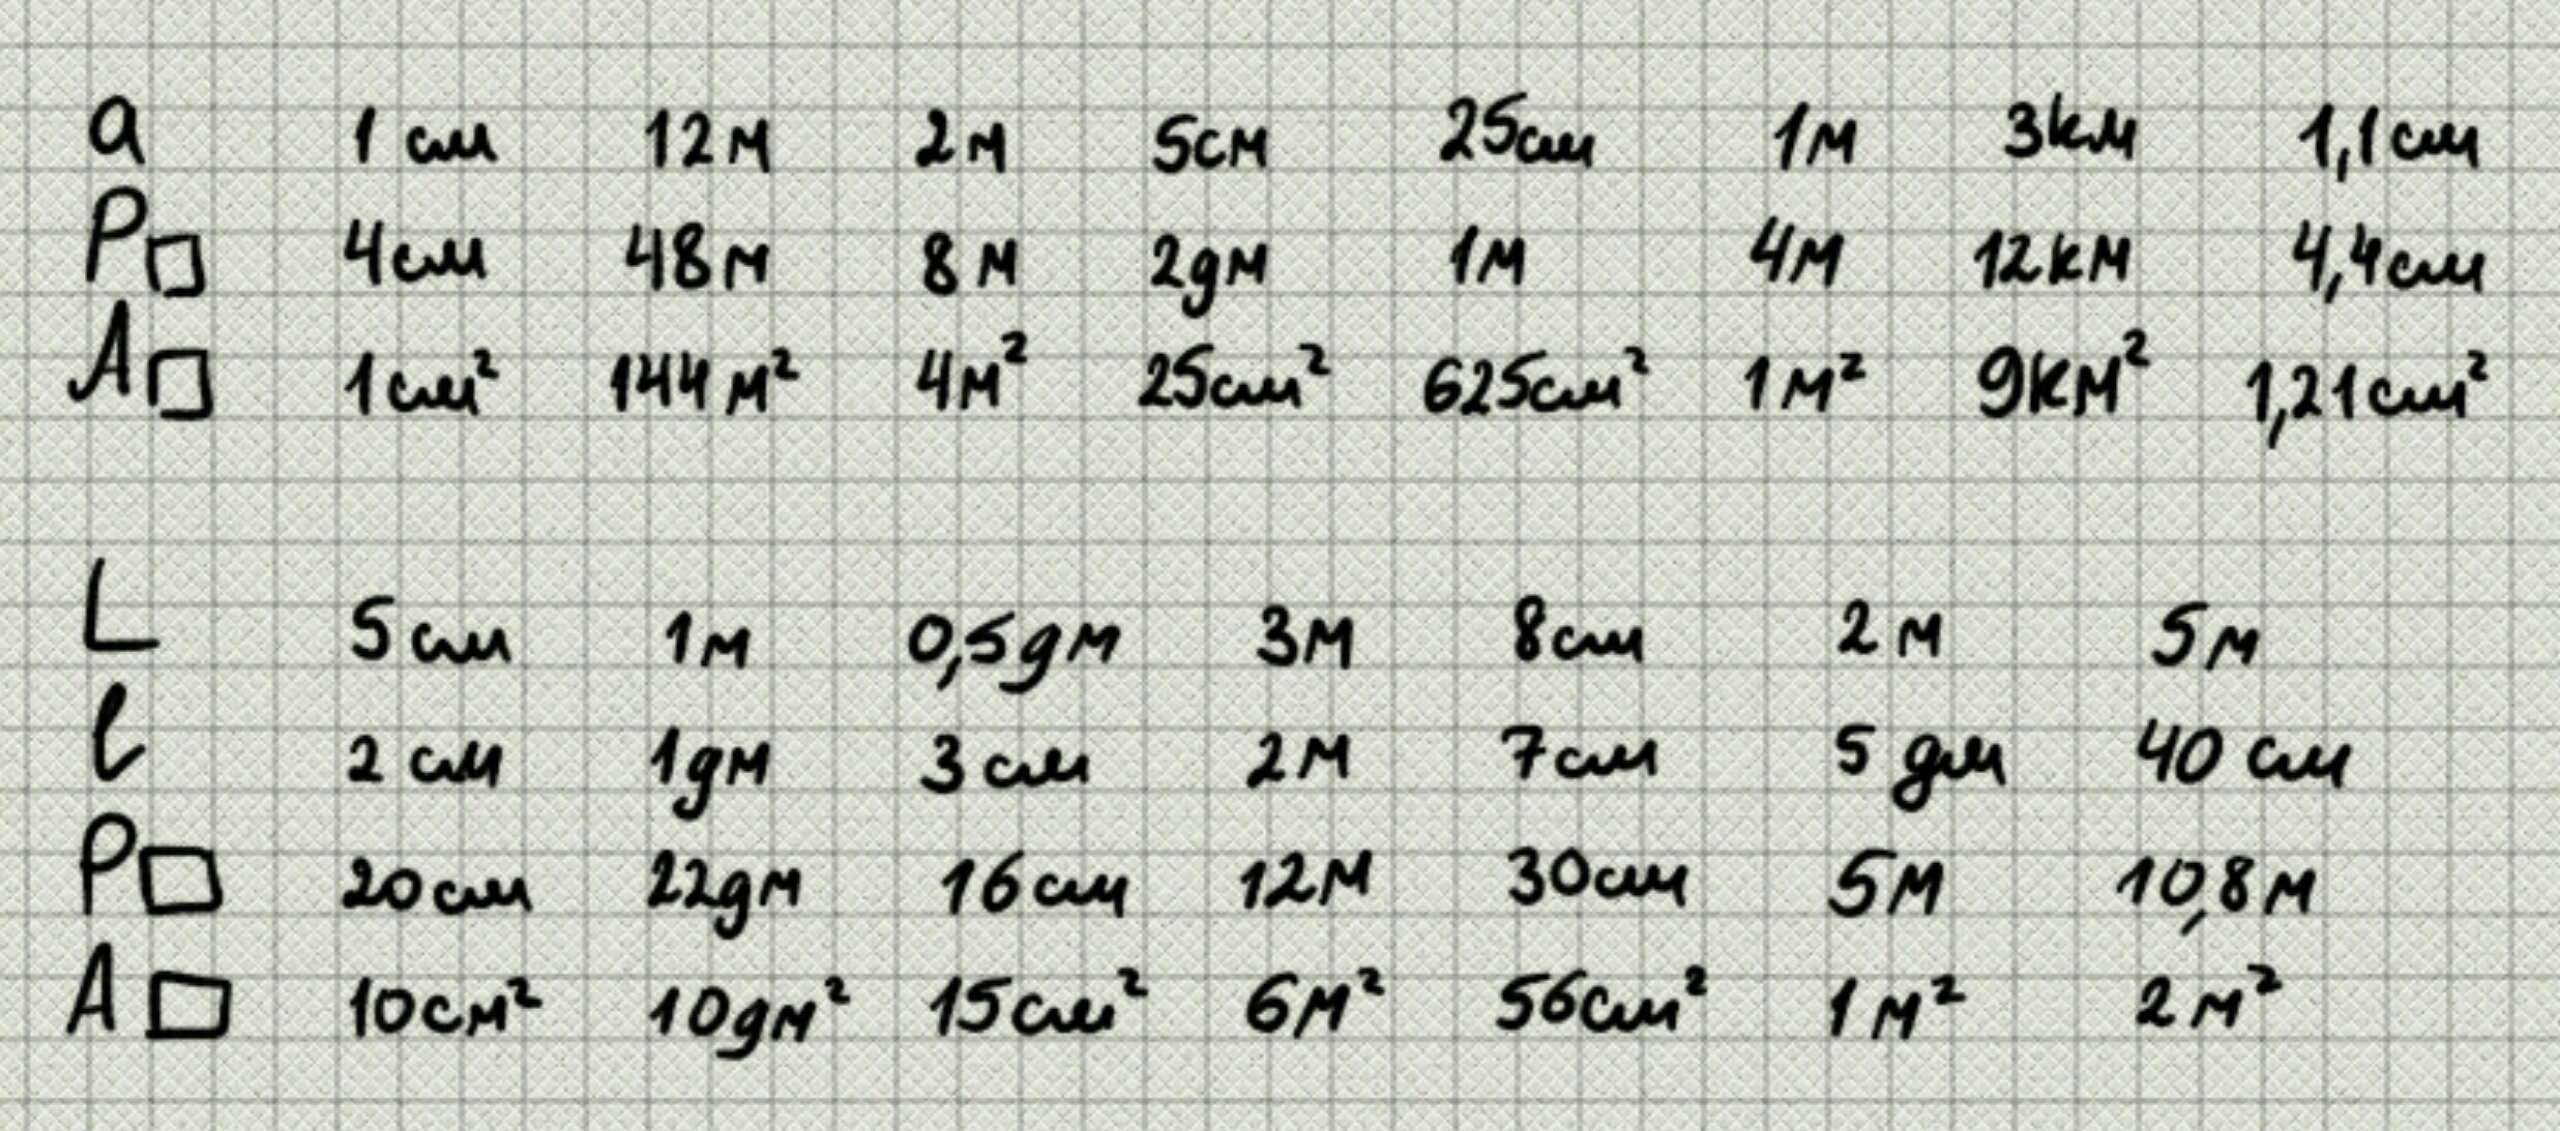 a 1 см 12 м 2 м 5 см 25 см 1 м 3 км 1,1 см
P□ 4 см 48 м 8 м 2 gм 1 м 4 м 12 км 4,4 см
A□ 1 см² 144 м² 4 м² 25 см² 625 см² 1 м² 9 км² 1,21 см²
L 5 см 1 м 0,5 gм 3 м 8 см 2 м 5 м
l 2 см 1 gм 3 см 2 м 7 см 5 gм 40 см
P▭ 20 см 22 gм 16 см 12 м 30 см 5 м 10,8 м
A▭ 10 см² 10 gм² 15 см² 6 м² 56 см² 1 м² 2 м²